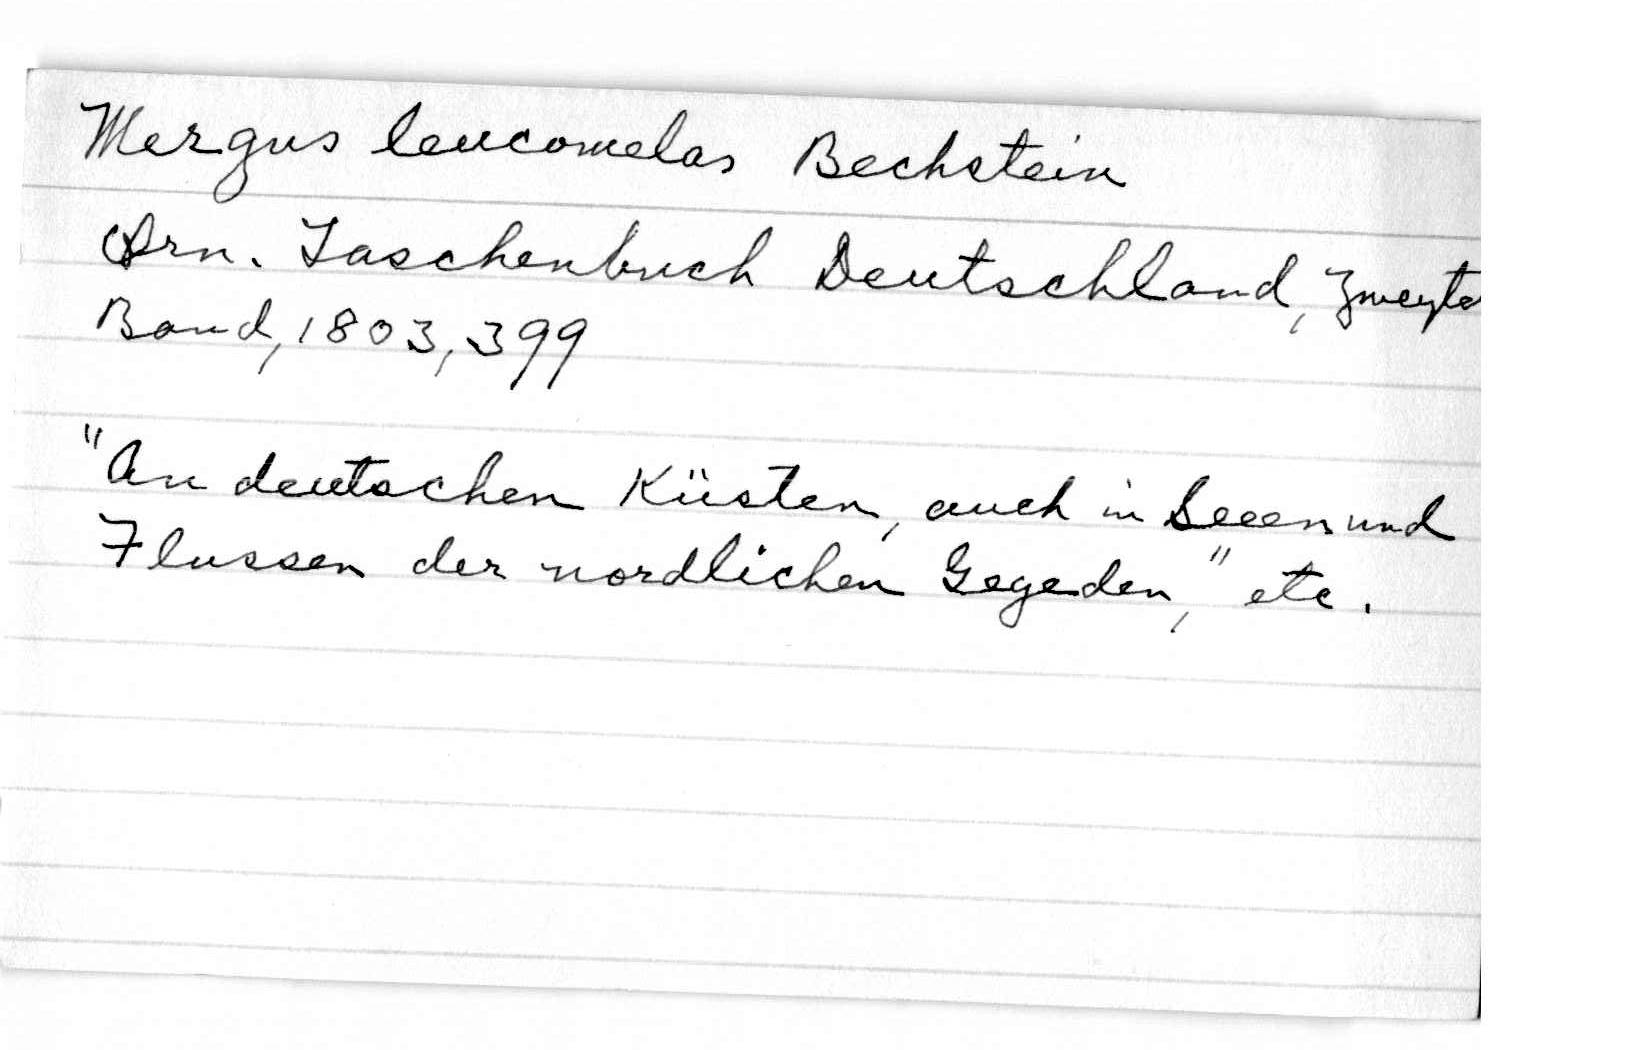 Mergus leucomelas Bechstein
Orn. Taschenbuch Deutschland, Zweyte
Band, 1803, 399
"An deutschen Küsten, auch in Seeen und
Flussen der nordlichen Gegeden," etc.